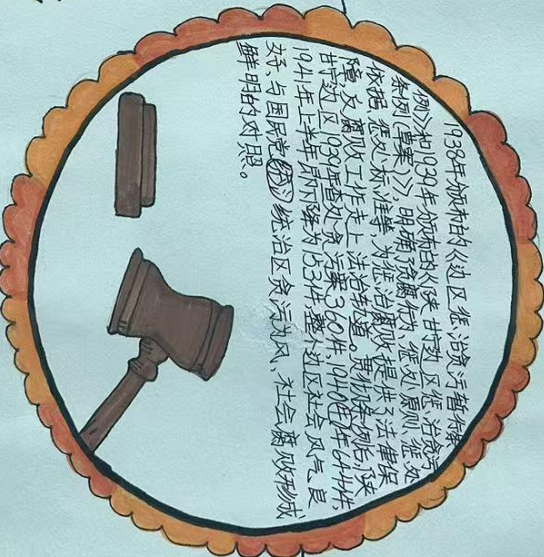 1938年颁布的《边区惩治贪污暂行条
例》和1939年颁布的《陕甘宁边区惩治贪污
条例(草案)》,明确了贪腐行为、惩处原则、惩处
依据、惩处标准等,为惩治腐败提供了法律保
障,反腐败工作走上法治轨道。贯彻条例后,陕
甘宁边区1939年查处贪污案360件,1940年644件,
1941年上半年则下降为153件,整个边区社会风气良
好,与国民党统治区贪污为风、社会腐败形成
鲜明的对照。